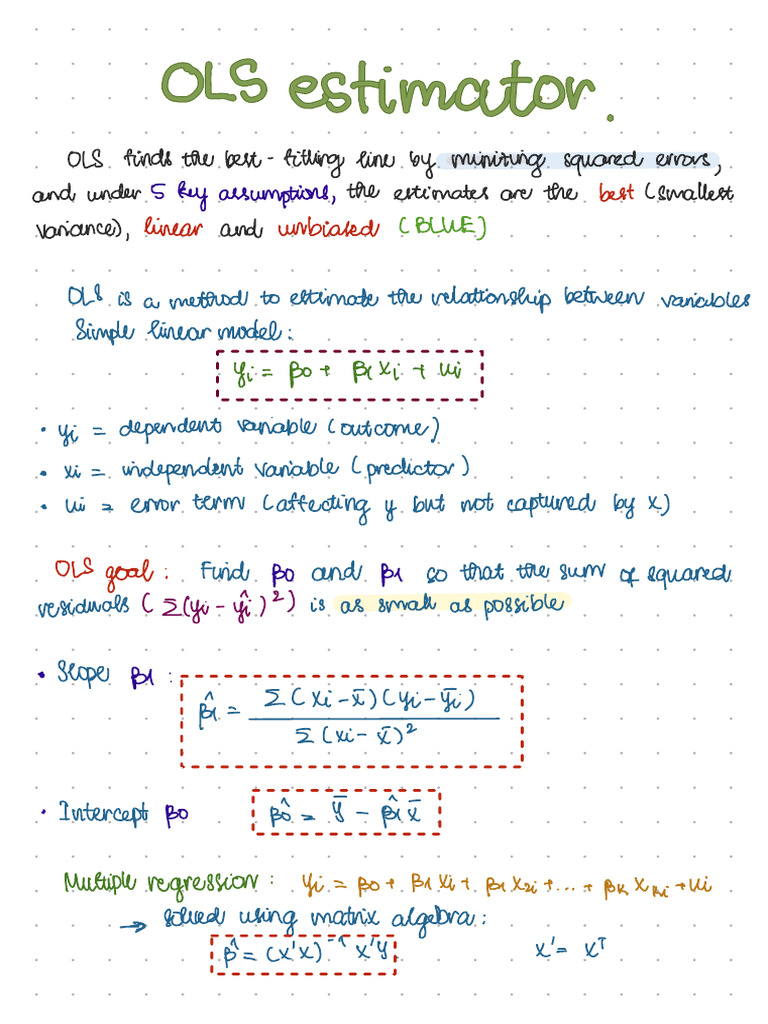 OLS estimator.
OLS finds the best-fitting line by minizing squared errors,
and under 5 key assumptions, the estimates are the best (smallest
variance), linear and unbiased (BLUE)
OLS is a method to estimate the relationship between variables
Simple linear model:
yi = β0 + β1xi + ui
• yi = dependent variable (outcome)
• xi = independent variable (predictor)
• ui = error term (affecting y but not captured by x)
OLS goal: Find β0 and β1 so that the sum of squared
residuals (Σ(yi - ŷi)²) is as small as possible
• Slope β1:
β̂1 = Σ(xi - x̄)(yi - ȳi) / Σ(xi - x̄)²
• Intercept β0 β̂0 = ȳ - β̂1x̄
Multiple regression: yi = β0 + β1xi + β1x2i + ... + βkxki + ui
→ solved using matrix algebra:
β̂ = (x'x)⁻¹x'y x' = xᵀ